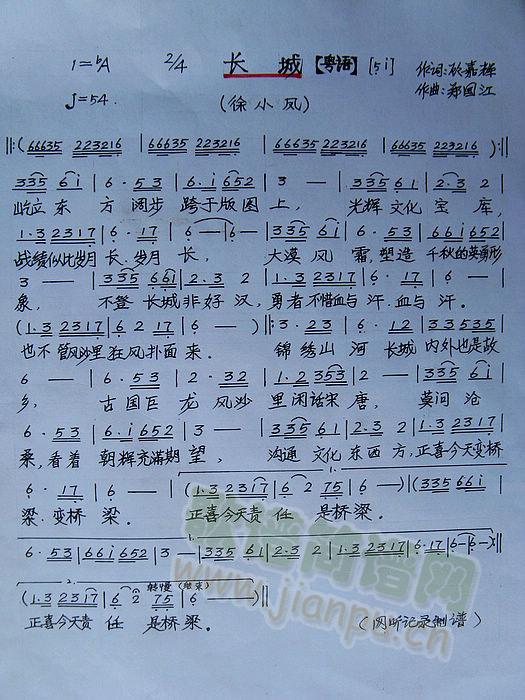 1=♭A 2/4 长城【粤语】[5 i] 作词:於嘉辉
♩=54. (徐小凤) 作曲:郑国江
‖:(66635 223216 | 66635 223216 | 66635 223216 | 66635 223216 ):‖
335 6i | 6·53 | 6·i652 | 3 — | 335 61 | 2·3 2 |
屹立东方阔步跨于版图上,光辉文化宝库,
1·3 2317 | 6·17 | 6 —|6—| 335 35 | 6·53 | 66i652 |
战绩似比岁月长.岁月长,大漠风霜,塑造千秋的英勇形
3 — | 335 661 | 2·3 2 | 1·3 2317 | 6·17 | 6 — |
象,不登长城非好汉,勇者不惜血与汗.血与汗.
(1·3 2317 | 6 2 17 | 6 —)‖:3·23 | 6·12 | 335535 |
也不管风沙里狂风扑面来.锦绣山河长城内外也是故
6 — | 6·53 | 2·32 | 1·2353 | 2 — | 335 6i |
乡,古国巨龙风沙里闲话宋唐,莫问沧
6·53 | 6·i652 | 3 — | 335 61 | 2·3 2 | 1·3 2317 |
桑,看着朝辉充满期望,沟通文化东西方,正喜今天变桥
1.
6·17 | 6 — | (1·3 2317 | 6 2 75 | 6 —)|(335661 |
梁.变桥梁.正喜今天责任是桥梁.
6·53 | 66i652 | 3 —|335 61 | 2·3 2 | 1·3 2317 | 6·17 | 6—|6—):‖
2. 转慢(结束)
(1·3 2317 | 6 2 75 | 6 — )‖
正喜今天责任是桥梁.(网听记录制谱)
www.jianpu.cn